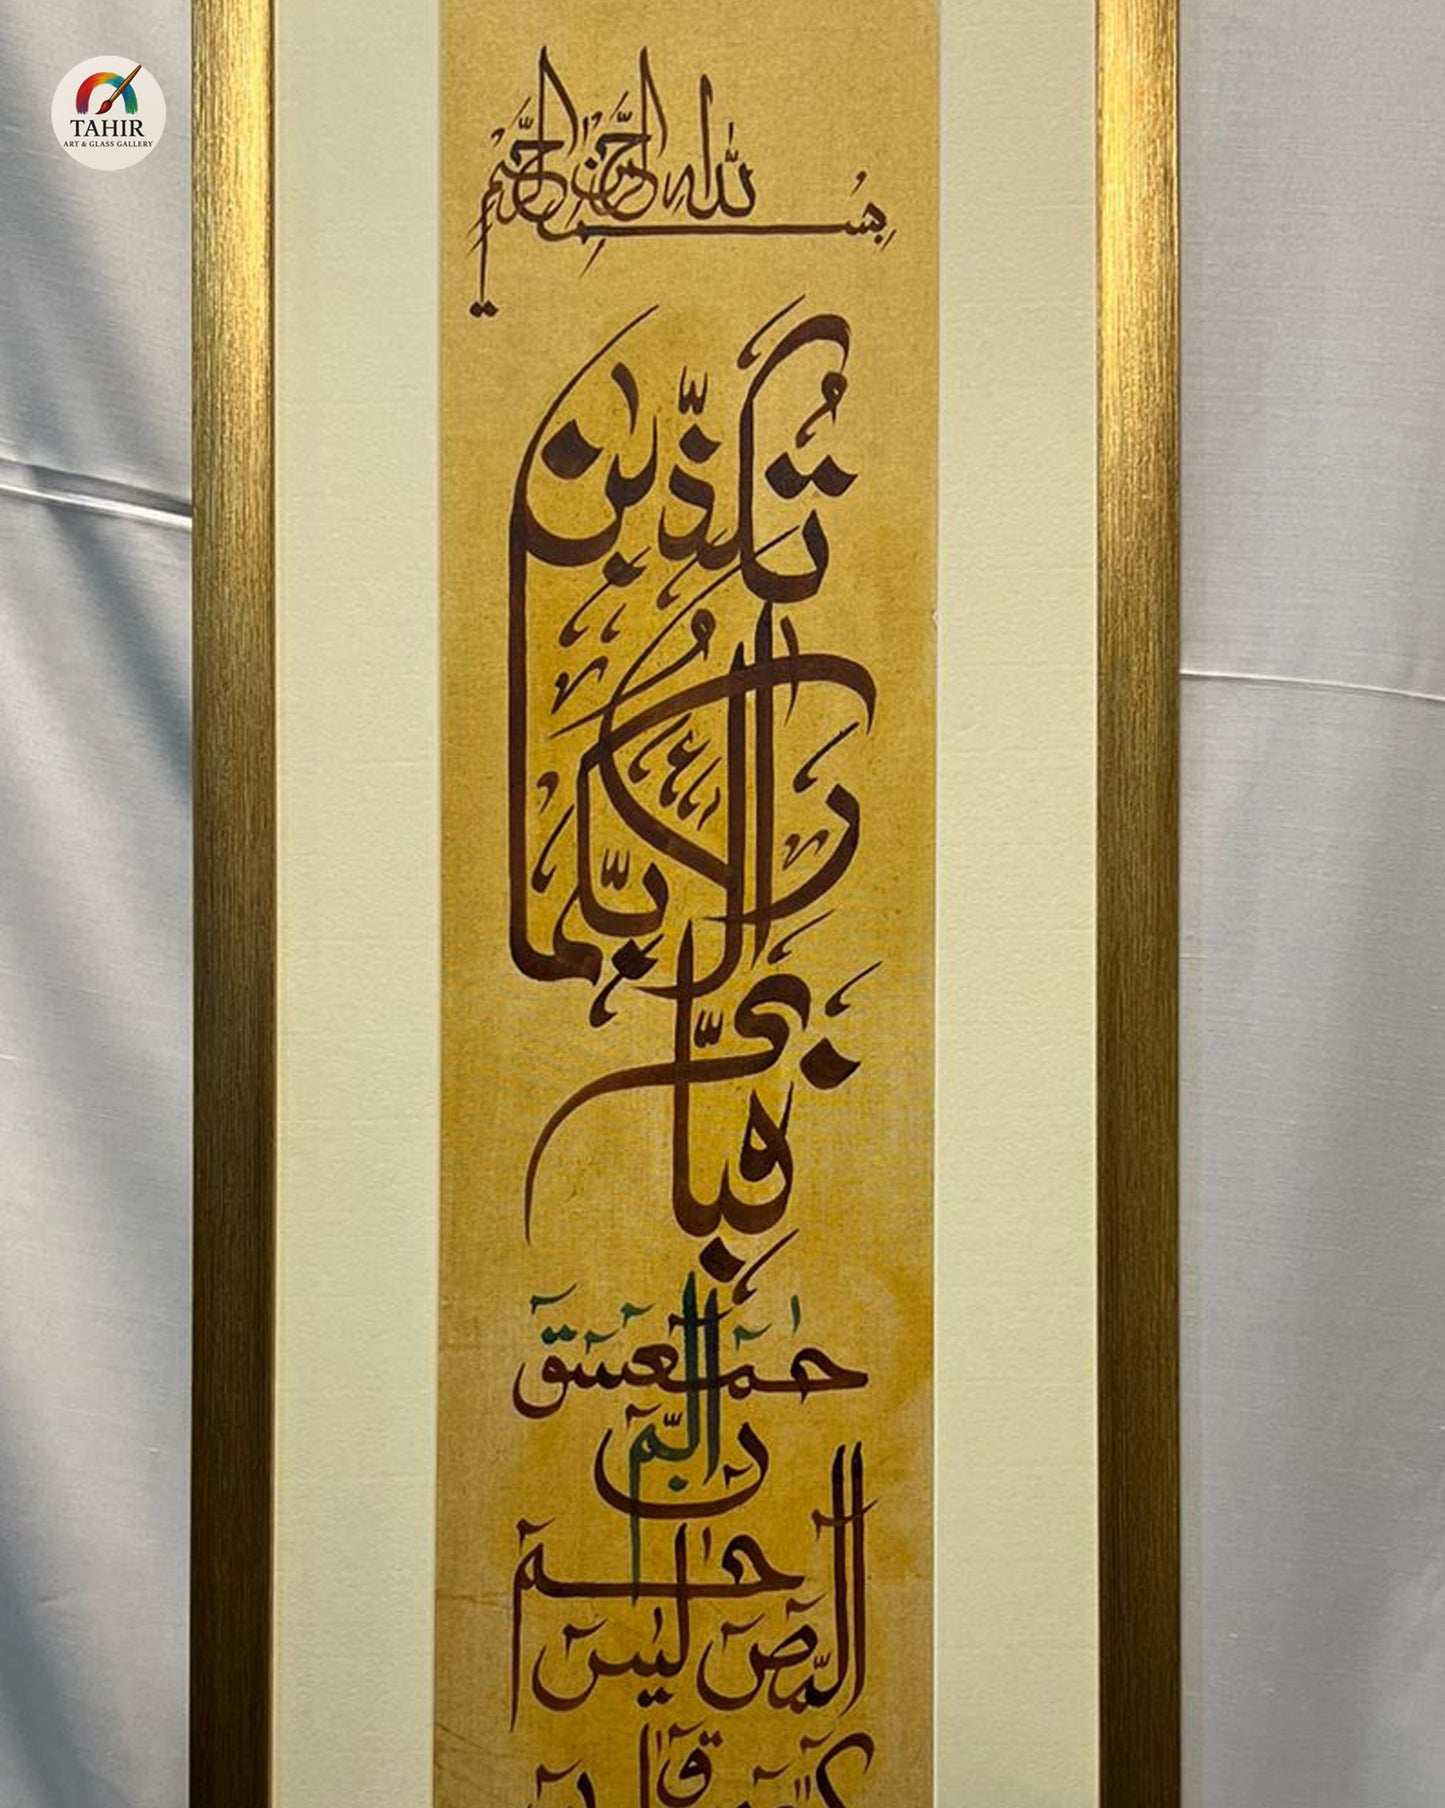 TAHIR
ART & GLASS GALLERY
بسم الله الرحمن الرحيم
فبأي آلاء ربكما تكذبان
حم عسق
ن الم
حم
المص يس